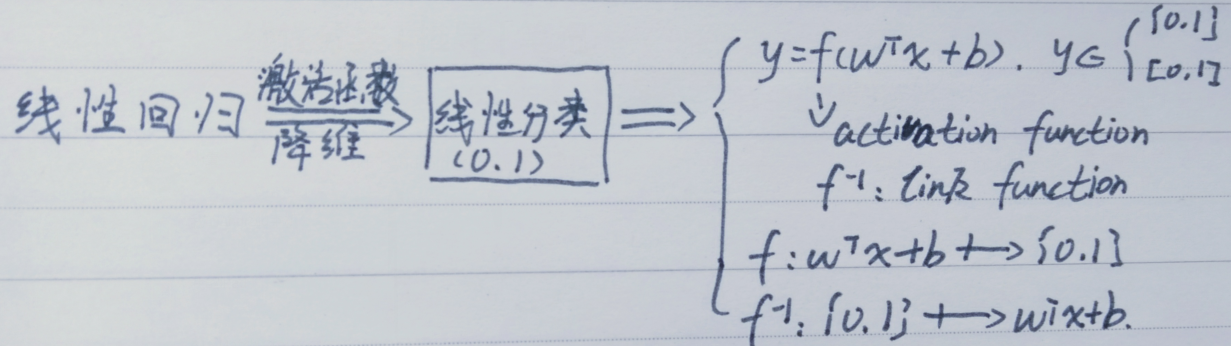 线性回归 激活函数 降维 线性分类 (0.1) ⟹
y=f(wᵀx+b). y∈ { {0.1} [0.1]
↓ activation function
f⁻¹: link function
f: wᵀx+b ↦ {0.1}
f⁻¹: {0.1} ↦ wᵀx+b.